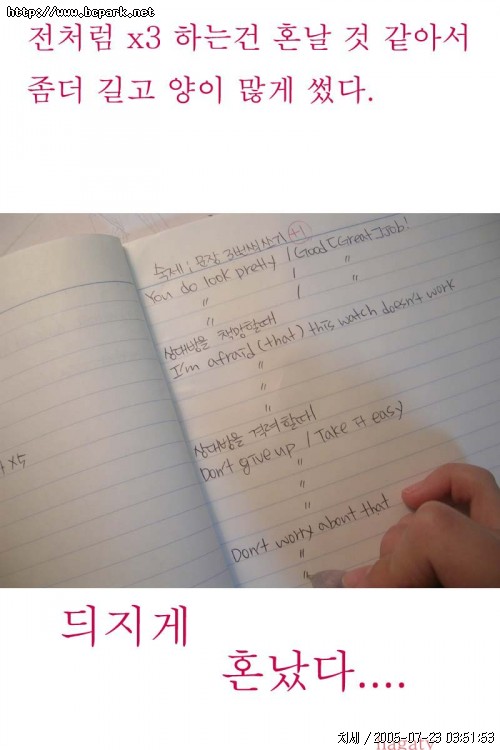 http://www.bcpark.net
전처럼 x3 하는건 혼날 것 같아서
좀더 길고 양이 많게 썼다.
숙제 : 문장 3번씩 쓰기 +1
You do look pretty / Good (Great) Job!
" / "
" / "
상대방을 책망할때
I'm afraid (that) this watch doesn't work
"
"
"
상대방을 격려할때
Don't give up / Take it easy
"
"
"
x5
Don't worry about that
"
"
듸지게
혼났다....
치세 / 2005-07-23 03:51:53
nagaty